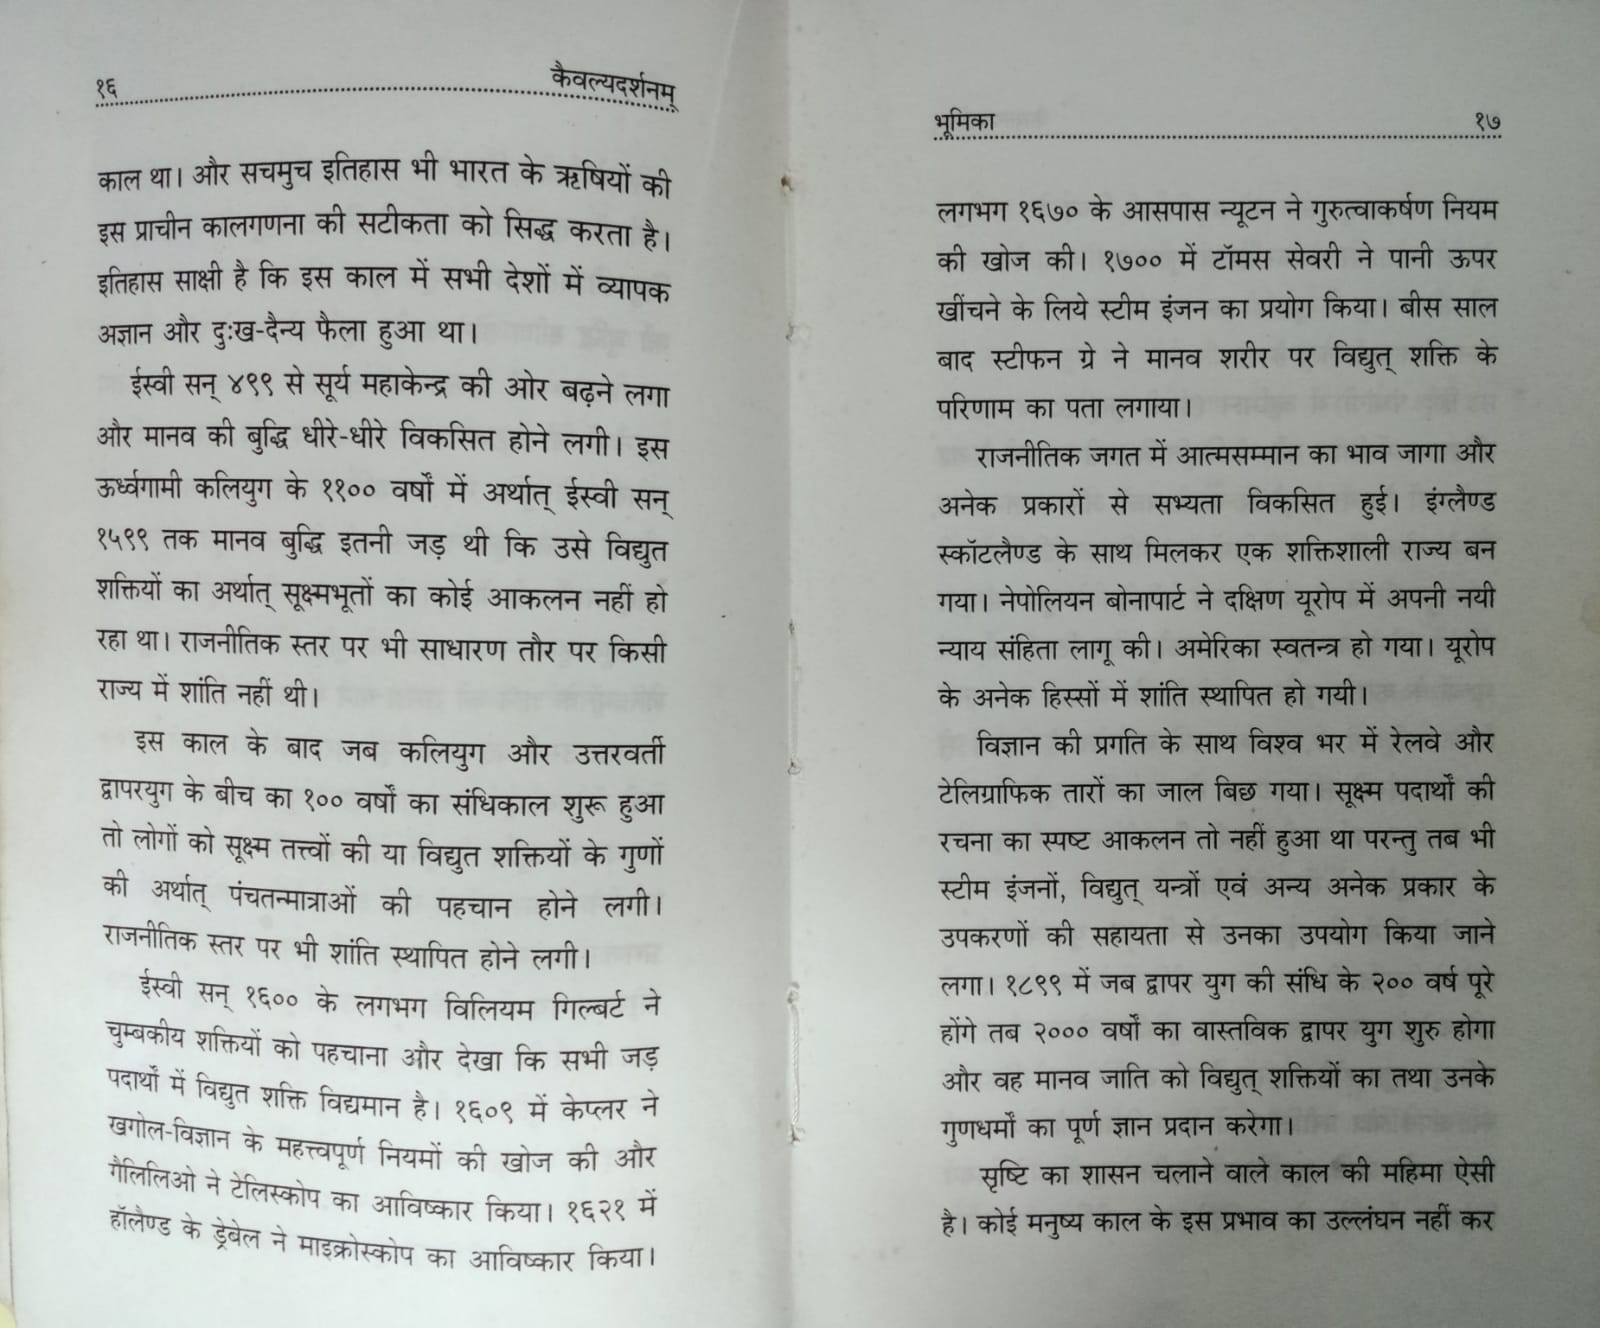 १६
कैवल्यदर्शनम्
काल था। और सचमुच इतिहास भी भारत के ऋषियों की
इस प्राचीन कालगणना की सटीकता को सिद्ध करता है।
इतिहास साक्षी है कि इस काल में सभी देशों में व्यापक
अज्ञान और दुःख-दैन्य फैला हुआ था।
ईस्वी सन् ४९९ से सूर्य महाकेन्द्र की ओर बढ़ने लगा
और मानव की बुद्धि धीरे-धीरे विकसित होने लगी। इस
ऊर्ध्वगामी कलियुग के ११०० वर्षों में अर्थात् ईस्वी सन्
१५९९ तक मानव बुद्धि इतनी जड़ थी कि उसे विद्युत
शक्तियों का अर्थात् सूक्ष्मभूतों का कोई आकलन नहीं हो
रहा था। राजनीतिक स्तर पर भी साधारण तौर पर किसी
राज्य में शांति नहीं थी।
इस काल के बाद जब कलियुग और उत्तरवर्ती
द्वापरयुग के बीच का १०० वर्षों का संधिकाल शुरू हुआ
तो लोगों को सूक्ष्म तत्त्वों की या विद्युत शक्तियों के गुणों
की अर्थात् पंचतन्मात्राओं की पहचान होने लगी।
राजनीतिक स्तर पर भी शांति स्थापित होने लगी।
ईस्वी सन् १६०० के लगभग विलियम गिल्बर्ट ने
चुम्बकीय शक्तियों को पहचाना और देखा कि सभी जड़
पदार्थों में विद्युत शक्ति विद्यमान है। १६०९ में केप्लर ने
खगोल-विज्ञान के महत्त्वपूर्ण नियमों की खोज की और
गैलिलिओ ने टेलिस्कोप का आविष्कार किया। १६२१ में
हॉलैण्ड के ड्रेबेल ने माइक्रोस्कोप का आविष्कार किया।
भूमिका
१७
लगभग १६७० के आसपास न्यूटन ने गुरुत्वाकर्षण नियम
की खोज की। १७०० में टॉमस सेवरी ने पानी ऊपर
खींचने के लिये स्टीम इंजन का प्रयोग किया। बीस साल
बाद स्टीफन ग्रे ने मानव शरीर पर विद्युत् शक्ति के
परिणाम का पता लगाया।
राजनीतिक जगत में आत्मसम्मान का भाव जागा और
अनेक प्रकारों से सभ्यता विकसित हुई। इंग्लैण्ड
स्कॉटलैण्ड के साथ मिलकर एक शक्तिशाली राज्य बन
गया। नेपोलियन बोनापार्ट ने दक्षिण यूरोप में अपनी नयी
न्याय संहिता लागू की। अमेरिका स्वतन्त्र हो गया। यूरोप
के अनेक हिस्सों में शांति स्थापित हो गयी।
विज्ञान की प्रगति के साथ विश्व भर में रेलवे और
टेलिग्राफिक तारों का जाल बिछ गया। सूक्ष्म पदार्थों की
रचना का स्पष्ट आकलन तो नहीं हुआ था परन्तु तब भी
स्टीम इंजनों, विद्युत् यन्त्रों एवं अन्य अनेक प्रकार के
उपकरणों की सहायता से उनका उपयोग किया जाने
लगा। १८९९ में जब द्वापर युग की संधि के २०० वर्ष पूरे
होंगे तब २००० वर्षों का वास्तविक द्वापर युग शुरु होगा
और वह मानव जाति को विद्युत् शक्तियों का तथा उनके
गुणधर्मों का पूर्ण ज्ञान प्रदान करेगा।
सृष्टि का शासन चलाने वाले काल की महिमा ऐसी
है। कोई मनुष्य काल के इस प्रभाव का उल्लंघन नहीं कर